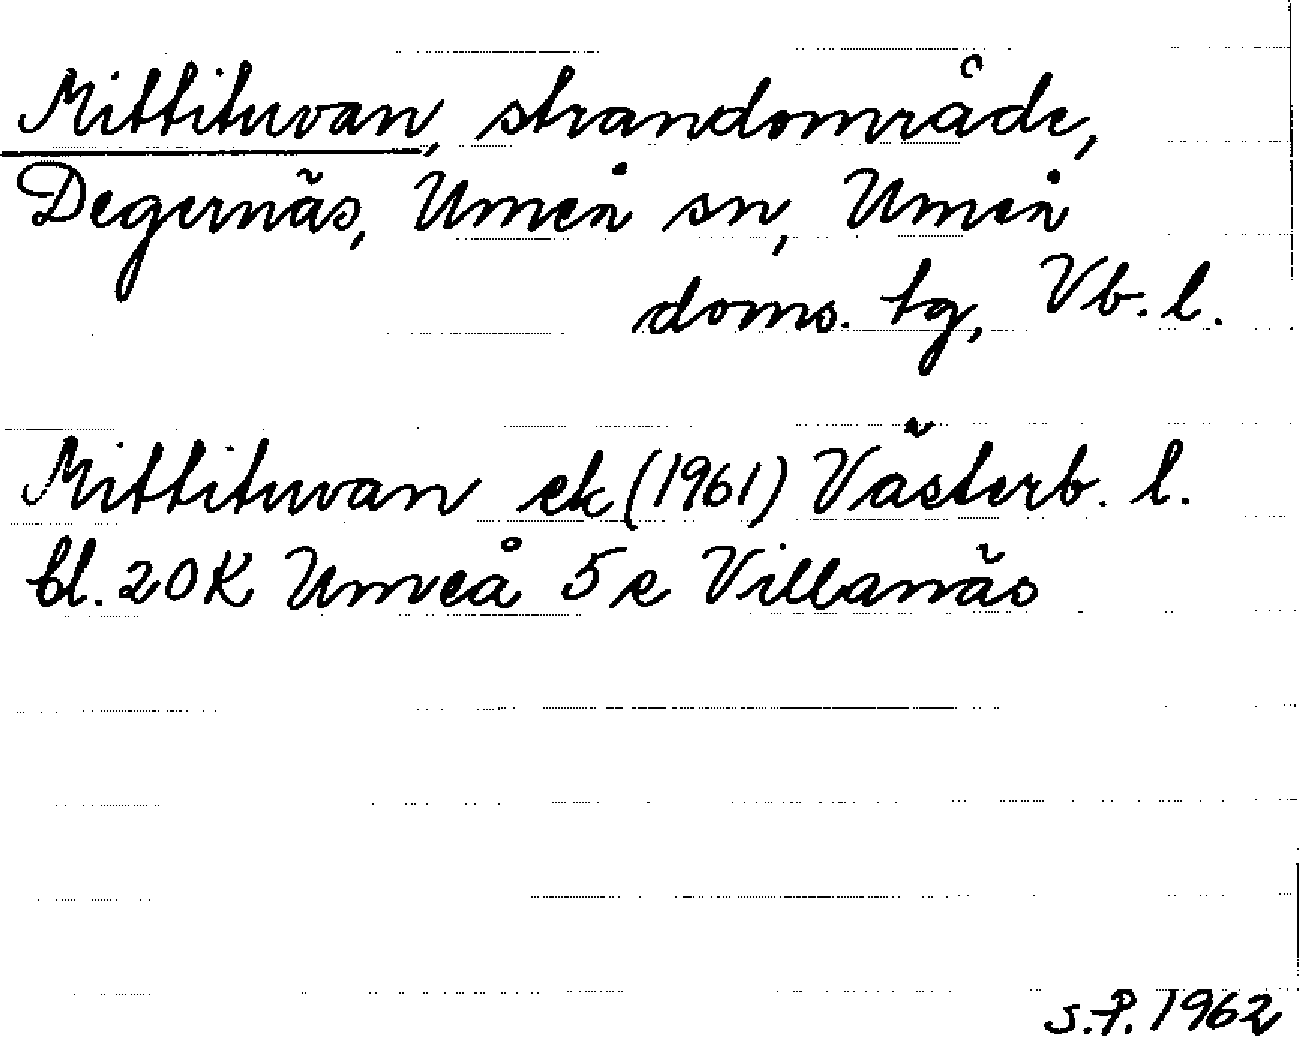 Mittituvan, strandområde,
Degernäs, Umeå sn, Umeå
doms. tg, Vb. l.
Mittituvan ek (1961) Västerb. l.
bl. 20K Umeå 5 e Villanäs
S.P. 1962